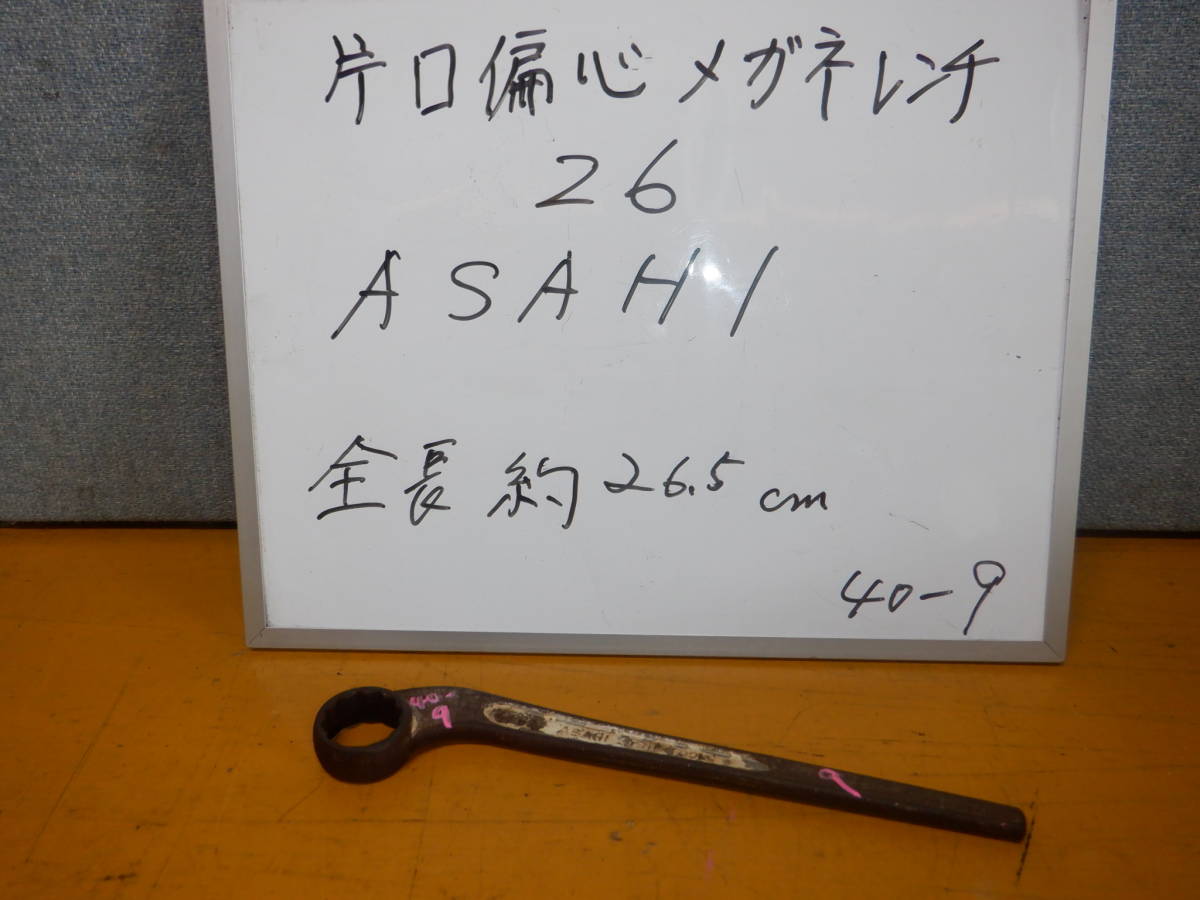 片口偏心メガネレンチ
26
ASAHI
全長 約 26.5 cm
40-9
40-
9
9